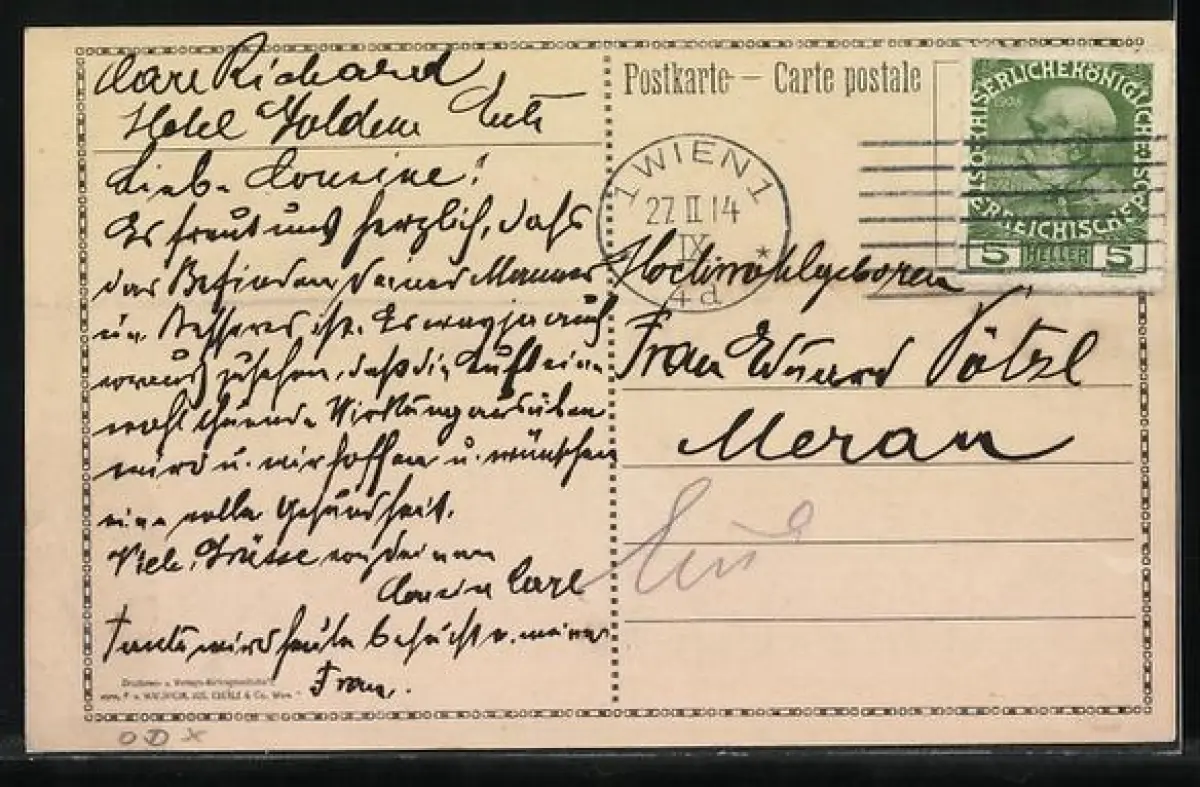 Carl Richard
Hotel Goldene Ente
Liebe Cousine!
Es freut uns herzlich, dass
das Befinden Deines Mannes
ein Besseres ist. Es war ja auch
voraus zusehen, daß die Luft eine
wohlthuende Wirkung ausüben
wird u. wir hoffen u. wünschen
eine volle Gesundheit.
Viele Grüsse von Deinem
Cousin Carl
Tante wird heute besucht v. meiner
Frau.
Druckerei- u. Verlags-Aktiengesellschaft
vorm. R. v. WALDHEIM, JOS. EBERLE & Co. Wien.
Postkarte — Carte postale
1 WIEN 1
27 II 14
IX
*
4d
KAISERLICHE KÖNIGLICHE
ÖSTERREICHISCHE POST
1908
5 HELLER 5
Hochwohlgeboren
Frau Eduard Pötzl
Meran